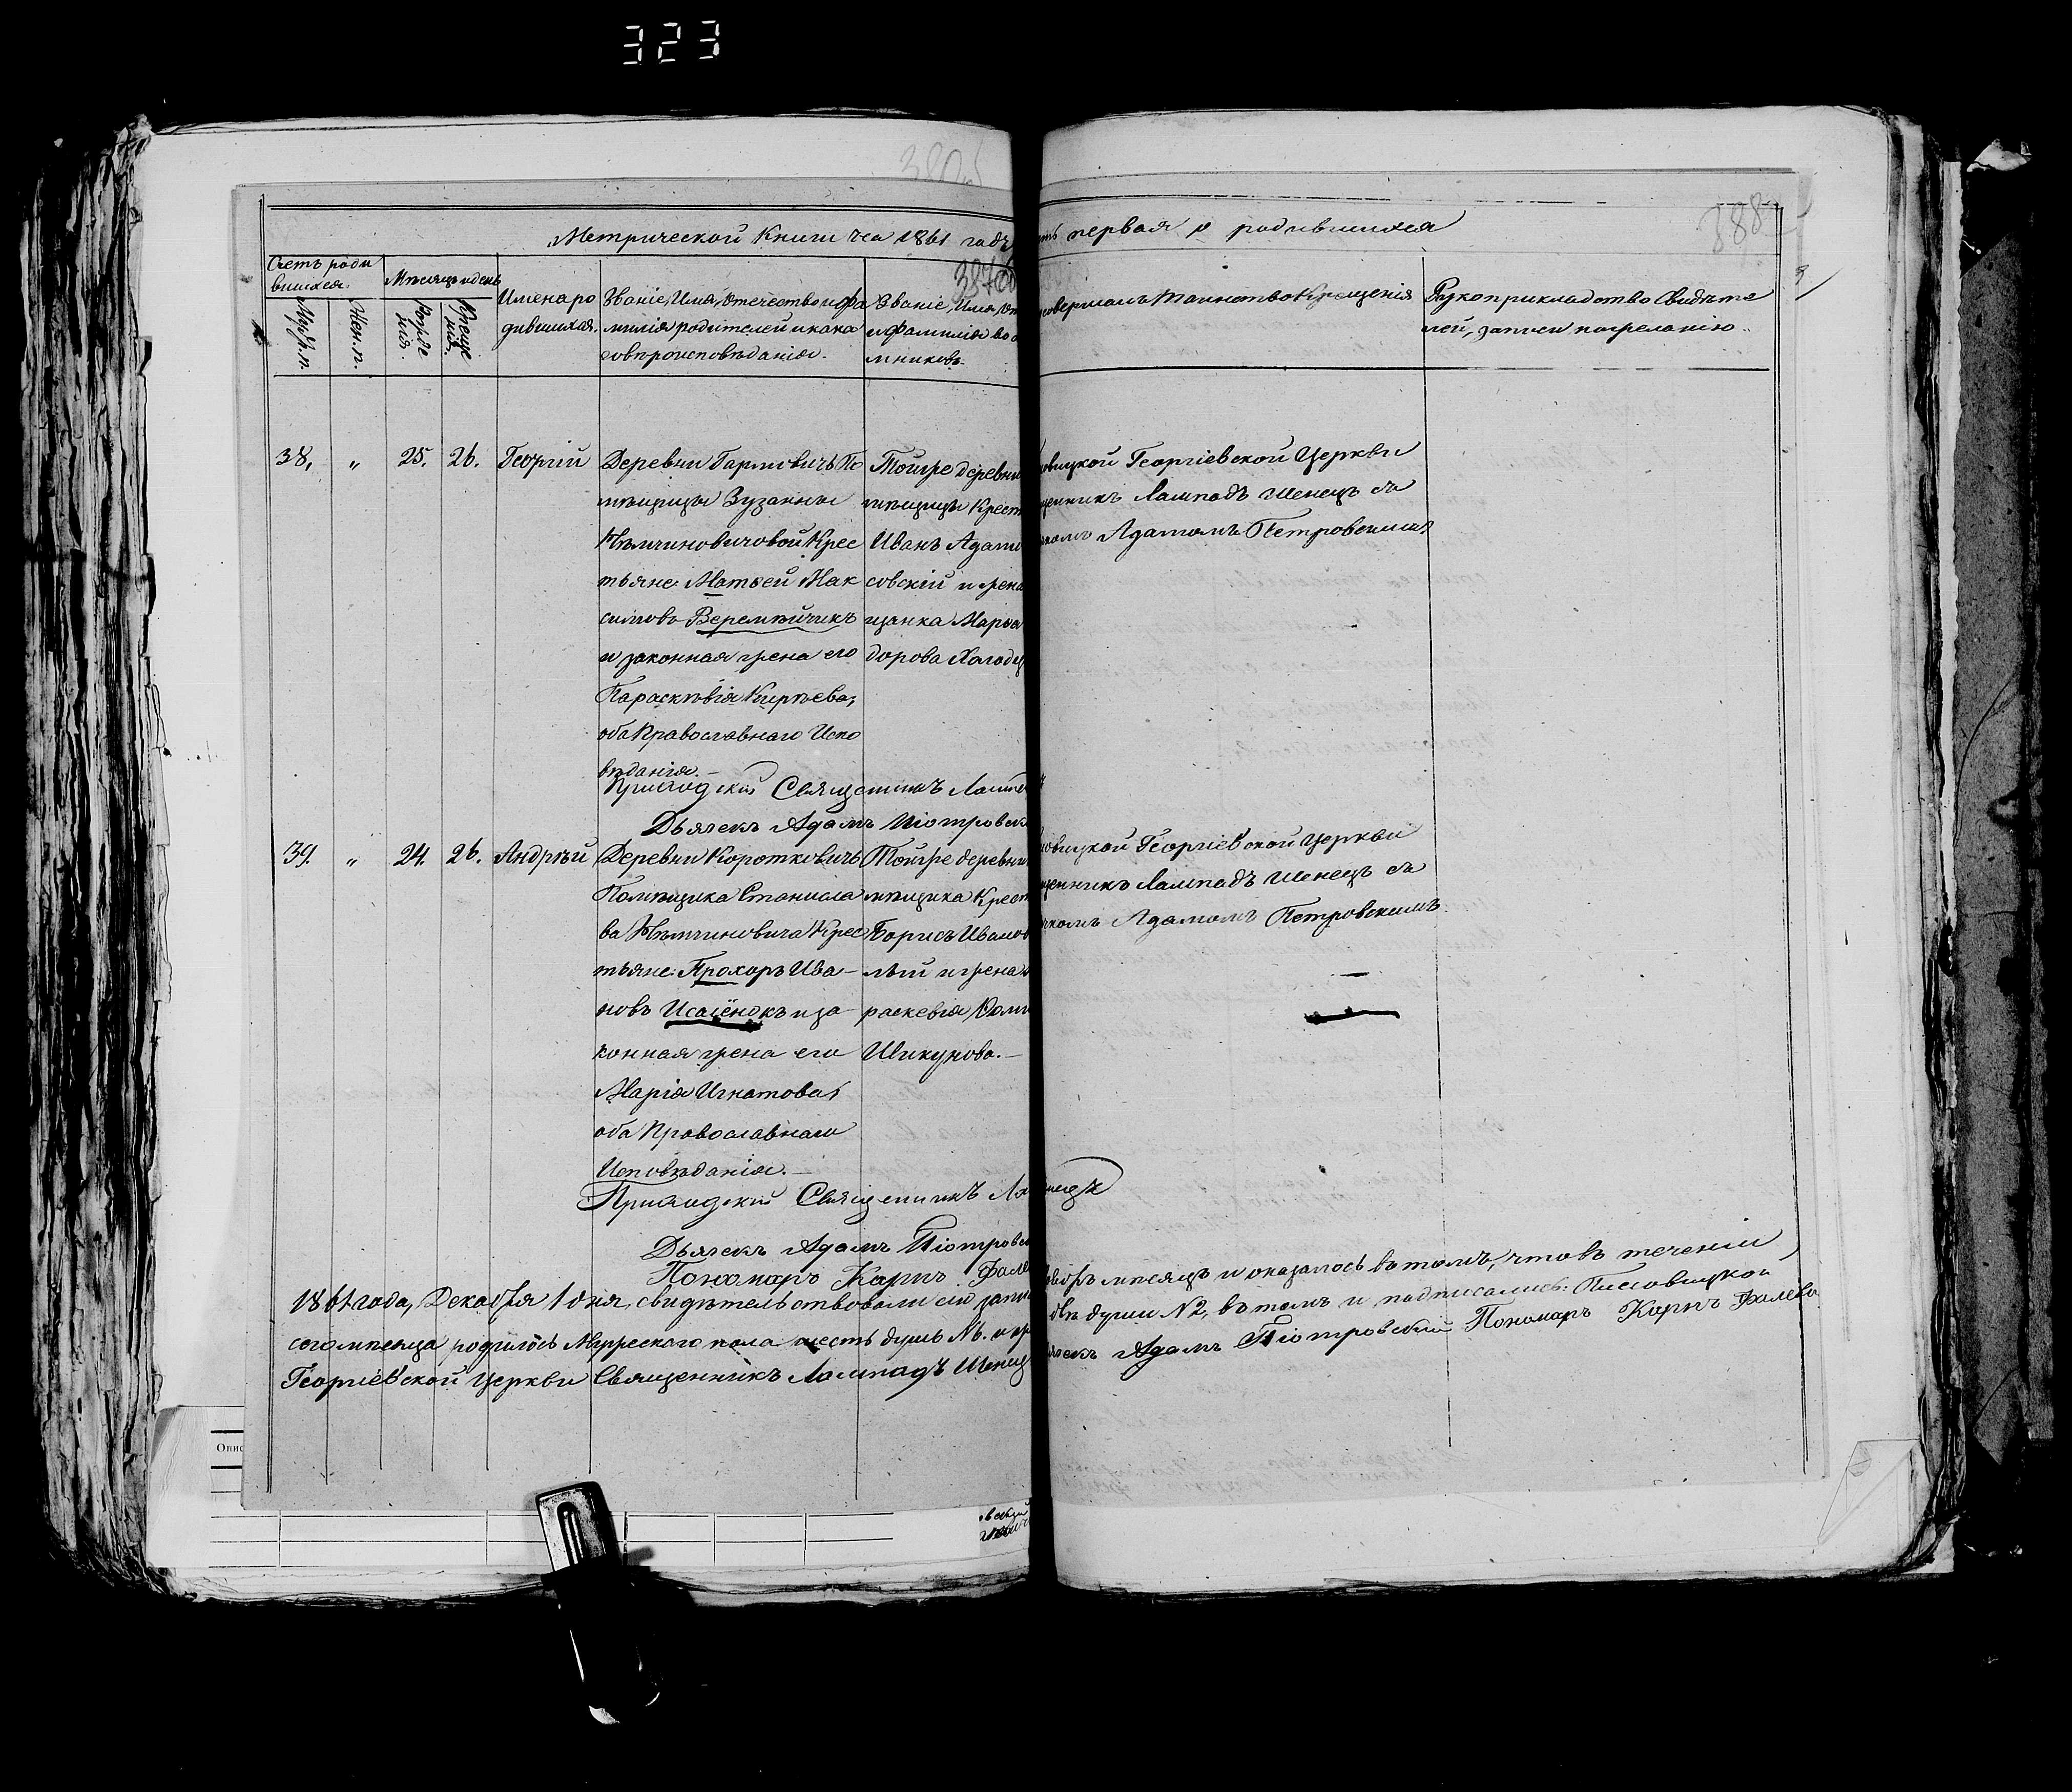 323
388
Метрической Книги на 1861 годъ
первая о родившихся
Счетъ роди
вшихся.
Мѣсяцъ и день
Муж. п.
Жен. п.
Рожде
нія.
Креще
нія.
Имена ро
дившихся.
Званіе, Имя, Отчество и фа
милія родителей и како
го вѣроисповѣданія.
Званіе, Имя, от
и фамилія во
мниковъ.
совершалъ таинство Крещенія
Рукоприкладство Свидѣте
лей, записи по желанію.
38. " 25. 26. Георгій
Деревни Гармовичъ По
мѣщицы Зузанны
Нѣмчиновичовой Крес
тьяне: Матѳей Мак
симовъ Веремѣйчикъ
и законная жена его
Параскевія Кирѣева,
оба Православнаго Испо
вѣданія.
Тойже деревни
мѣщицы Крест
Иванъ Адамо
совскій и жена
щанка Марѳа
дорова Холод
овицкой Георгіевской Церкви
щенникъ Лампадъ Шенецъ съ
комъ Адамомъ Петровскимъ
Приходскій Священникъ
Дьячекъ Адамъ Піотровск
39. " 24. 26. Андрей
Деревни Короткевичъ
Помѣщика Станисла
ва Нѣмчиновича Крес
тьяне: Прохоръ Ива-
новъ Исаёнокъ и за-
конная жена его
Марія Игнатова,
оба Православнаго
Исповѣданія.
Тойже деревни
мѣщика Крест
Борисъ Иванов
лый и жена
раскевія
Шикунова.
овицкой Георгіевской Церкви
щенникъ Лампадъ Шенецъ съ
комъ Адамомъ Петровскимъ.
Приходскій Священникъ
Дьячекъ Адамъ Піотровс
Пономарь Карпъ Фале
1861 года, Декабря 1 дня, свидѣтельствовали сію запи
ябрь мѣсяцъ и оказалось въ томъ, что въ теченіи
сего мѣсяца родилось Мужескаго пола шесть душъ №6. и
двѣ души №2, въ томъ и подписались:
Георгіевской Церкви Священникъ Лампадъ Шенец
ячекъ Адамъ Піотровскій Пономарь Карпъ Фалев
Опис